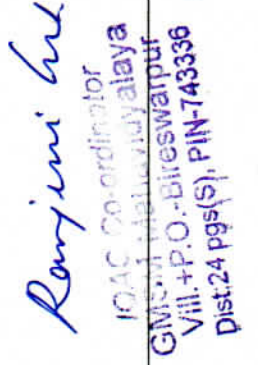 Ranjini
IQAC Co-ordinator
Mahavidyalaya
Vill.+P.O.-Bireswarpur
Dist.24 pgs(S), PIN-743336